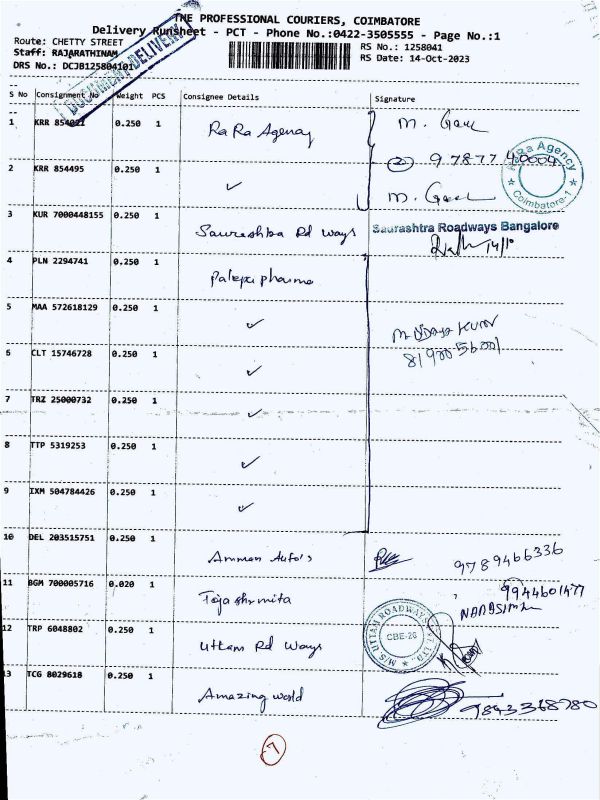 THE PROFESSIONAL COURIERS, COIMBATORE
Delivery Runsheet - PCT - Phone No.:0422-3505555 - Page No.:1
Route: CHETTY STREET RS No.: 1258041
Staff: RAJARATHINAM RS Date: 14-Oct-2023
DRS No.: DCJB125804101
DOCUMENT DELIVERY
S No Consignment No Weight PCS Consignee Details Signature
1 KRR 854021 0.250 1 RaRa Agency M.
2 97877 40004
RaRa Agency Coimbatore-1
2 KRR 854495 0.250 1 ✓ M.
3 KUR 7000448155 0.250 1 Saurashtra Rd Ways Saurashtra Roadways Bangalore
14/10
4 PLN 2294741 0.250 1 Palepu pharma
5 MAA 572618129 0.250 1 ✓
6 CLT 15746728 0.250 1 ✓
7 TRZ 25000732 0.250 1 ✓
8 TTP 5319253 0.250 1 ✓
9 IXM 504784426 0.250 1 ✓
10 DEL 203515751 0.250 1 Amman Auto's 9789466336
11 BGM 700005716 0.020 1 9944601477
NARASIMA
12 TRP 6048802 0.250 1 Uttam Rd Ways M/S. UTTAM ROADWAYS PVT. LTD., CBE-26
13 TCG 8029618 0.250 1 Amazing world 9843368780
7